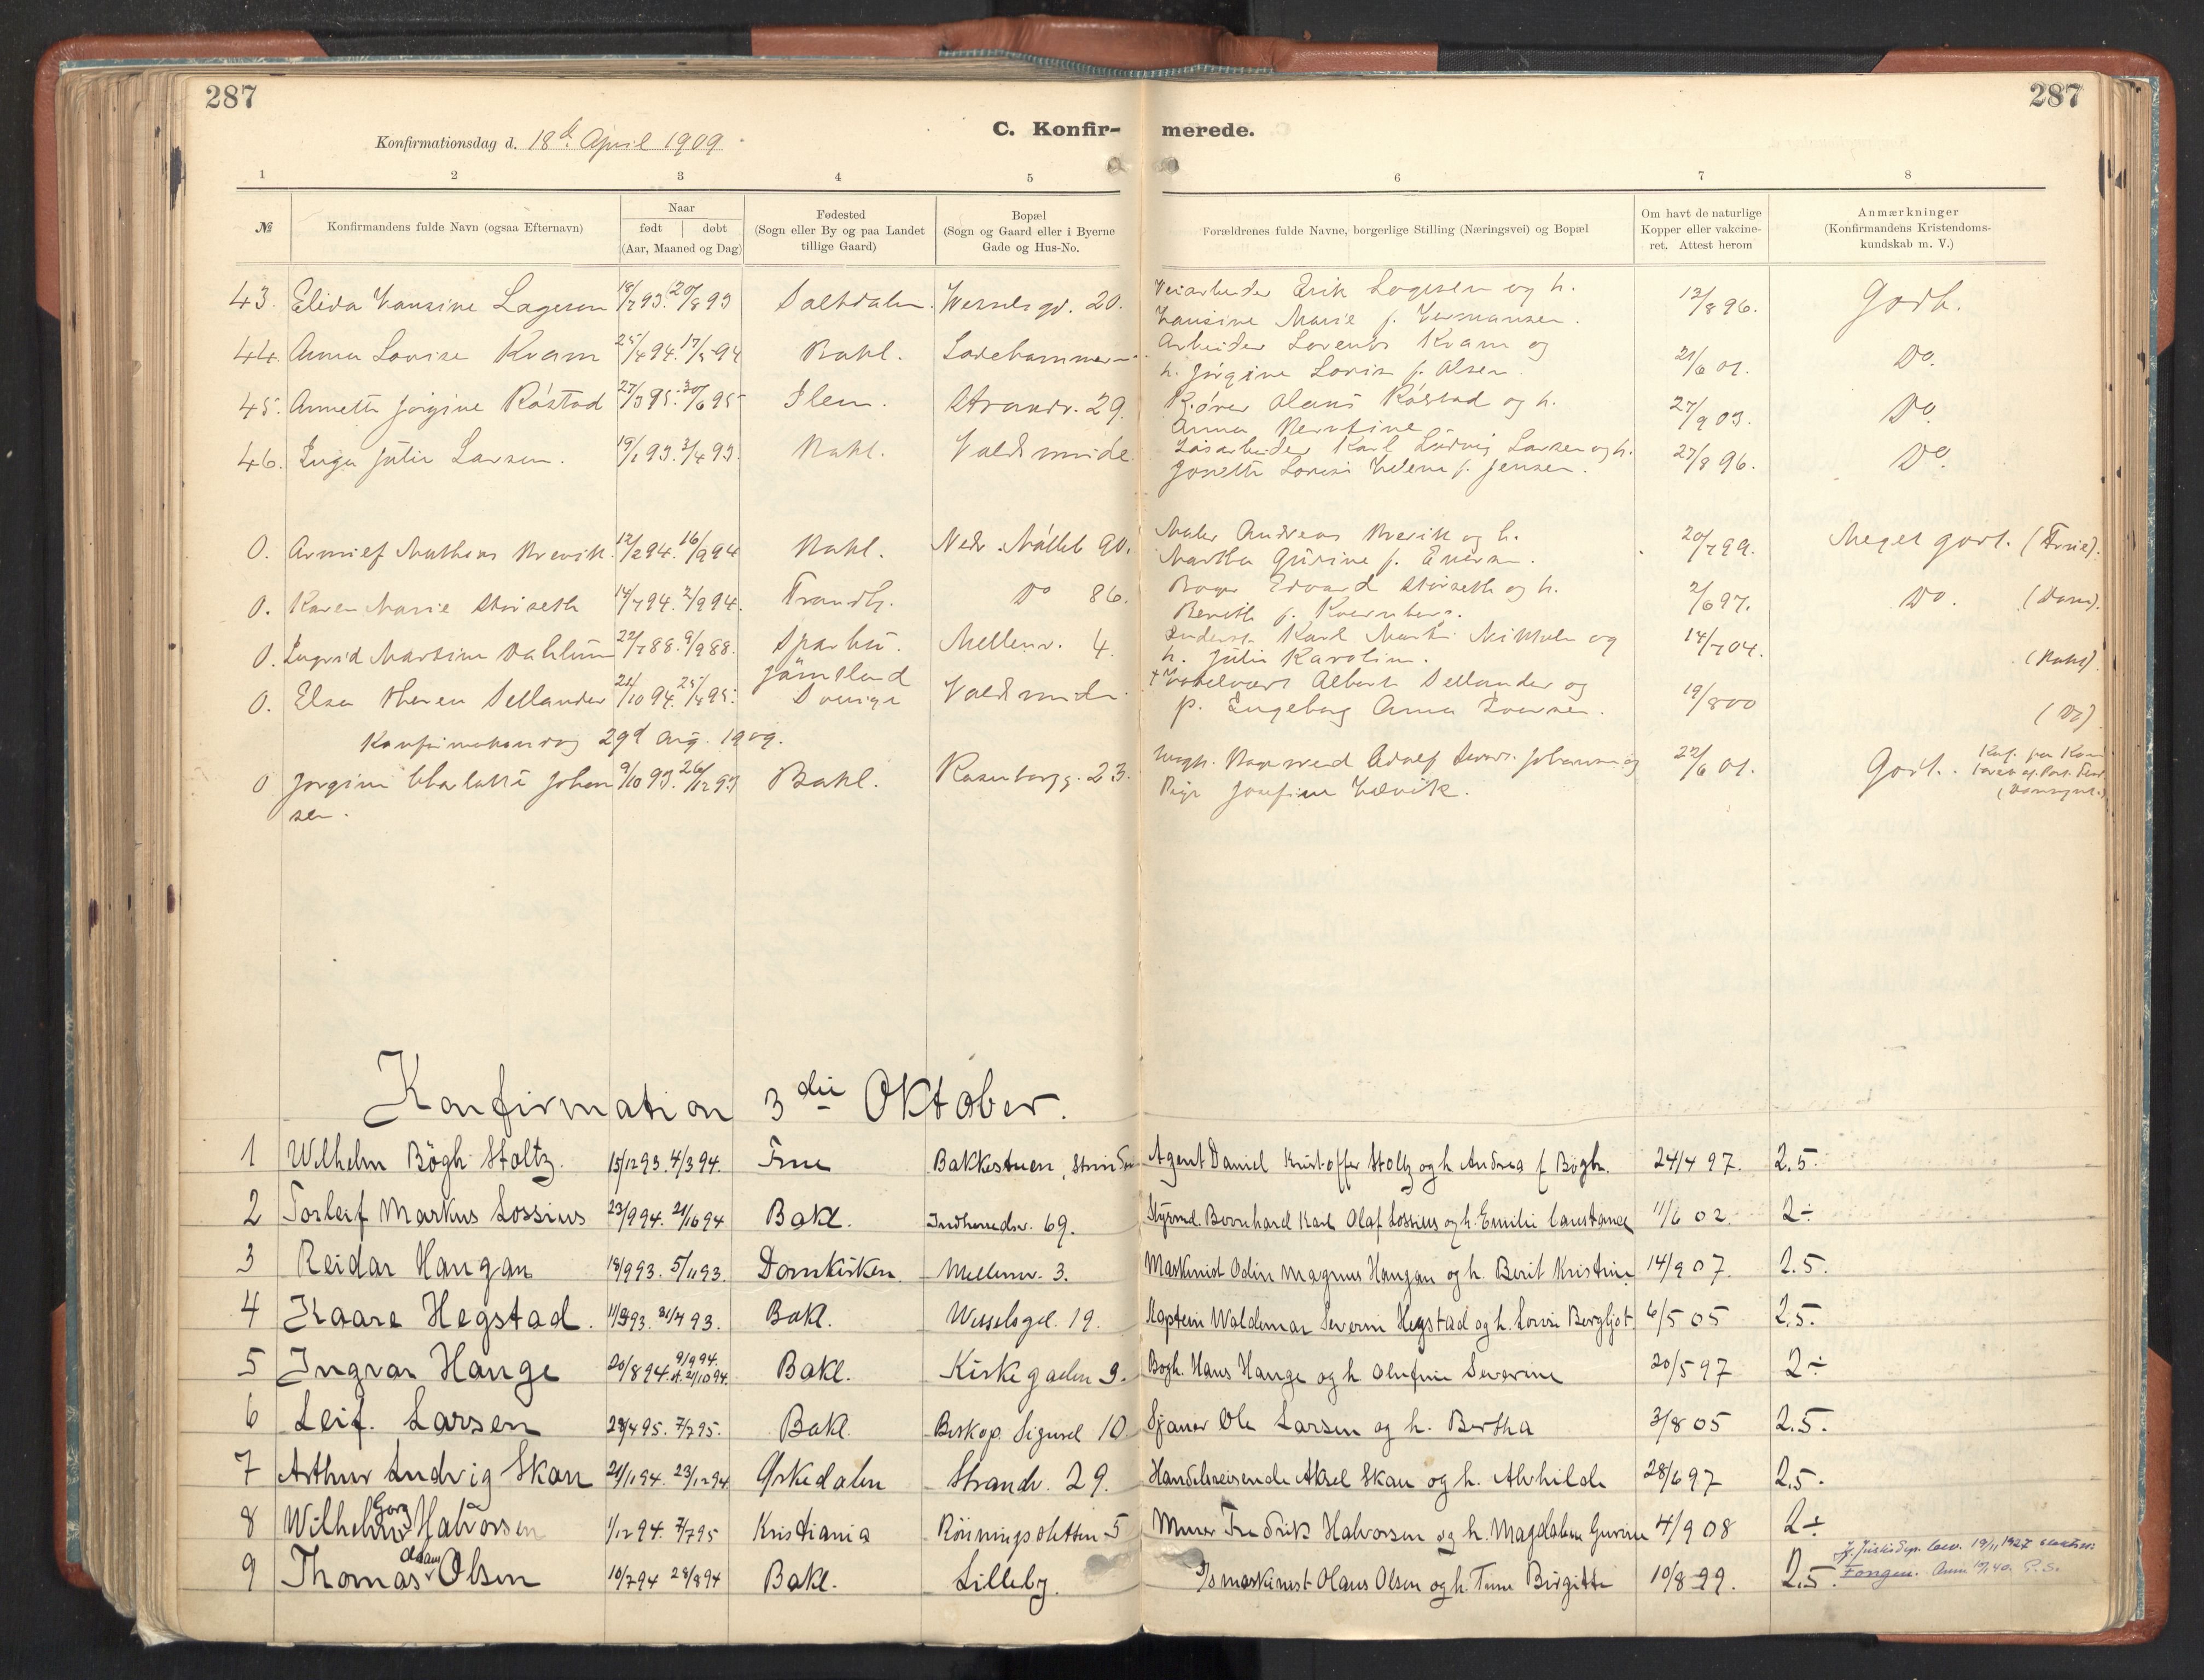 287
287
C. Konfir- merede.
Konfirmationsdag d. 18de April 1909.
1 2 3 4 5 6 7 8
№
Konfirmandens fulde Navn (ogsaa Efternavn)
Naar
født | døbt
(Aar, Maaned og Dag)
Fødested
(Sogn eller By og paa Landet
tillige Gaard)
Bopæl
(Sogn og Gaard eller i Byerne
Gade og Hus-No.
Forældrenes fulde Navne, borgerlige Stilling (Næringsvei) og Bopæl
Om havt de naturlige
Kopper eller vakcine-
ret. Attest herom
Anmærkninger
(Konfirmandens Kristendoms-
kundskab m. V.)
43. Elida Hansine Lagesen 18/7 93. 20/8 93 Saltdalen. Wesselsgd. 20. Veiarbeider Erik Lagesen og h. 12/8 96. Godt.
Hansine Marie f. Hermansen.
44. Anna Lovise Kvam 25/4 94. 17/5 94 Bakl. Ladehammeren Arbeider Lorents Kvam og 21/6 01. Do.
h. Jörgine Lovise f. Olsen.
45. Annette Jörgine Råstad 27/3 95. 30/6 95 Ilen. Strandv. 29. Kjører Olaus Råstad og h. 27/9 03. Do.
Anna
46. Inga Julie Larsen. 19/1 93. 3/4 93. Bakl. Voldsminde Løsarbeider Karl Ludvig Larsen og h. 27/8 96. Do.
Josette Lovise Helene f. Jensen.
0. Arnulf Mathias Brevik. 12/2 94. 16/9 94 Bakl. Nedr. Møllebg 90. Maler Andreas Brevik og h. 20/7 99. Meget godt. (Frue).
Martha Gurine f. Eversen.
0. Karen Marie Störseth 14/7 94. 2/9 94. Trondh. Do 86. Edvard Störseth og h. 2/6 97. Do. (Dom).
Berith f. Kvernberg.
0. Ingrid Martine Dahlum 22/7 88. 9/9 88. Sparbu. Mellemv. 4. Karl Martin og 14/7 04. (Bakl).
h. Julie Karoline.
0. Elsa Theresa Sellander 21/10 94. 25/8 95. Jämtland Voldsminde † Albert Sellander og 19/8 00 (Do)
Sverige p. Engeborg Anna Iversen.
Konfirmationsdag 29d Aug. 1909.
0 Jorgine Charlotte Johan 9/10 93. 26/12 93 Bakl. Rosenborgg. 23. Ungk. Adolf Johansen og 22/6 01. Godt.
sen. Pige Josefine Hævik.
Konfirmation 3die Oktober.
1 Wilhelm Bögh Stoltz. 15/12 93. 4/3 94. Frue Bakkestuen, Strinden Agent Daniel Kristoffer Stoltz og h. Andrea f Bögh. 24/4 97. 2.5.
2 Torleif Markus Lossius 23/9 94. 21/10 94 Bakl. Indherredsv. 69. Styrmd. Bernhard Karl Olaf Lossius og h. Emilie Constance 11/6 02. 2÷
3 Reidar Haugan 18/9 93. 5/11 93. Domkirken. Mellemv. 3. Maskinist Odin Magnus Haugan og h. Berit Kristine 14/9 07. 2.5.
4 Kaare Hegstad. 93. 93. Bakl. Wesselsgd. 19. Kaptein Waldemar Severin Hegstad og h. Lovise Bergljot 6/5 05 2.5.
5 Ingvar Hauge 20/8 94. 9/9 94. st. 21/10 94. Bakl. Kirkegaden 9. Bogh. Hans Hauge og h. Olufine Severine 20/5 97 2÷
6 Leif. Larsen 28/4 95. 7/7 95. Bakl. Biskop. Sigurd 10 Sjauer Ole Larsen og h. Bertha 3/8 05 2.5.
7 Arthur Ludvig Skau 21/11 94. 23/12 94 Ørkedalen Strandv. 29. Handelsreisende Aksel Skau og h. Alvhilde 28/6 97 2.5.
8 Wilhelm Georg Halvorsen 1/12 94. 7/7 95 Kristiania Rönningsletten 5 Murer Fredrik Halvorsen og h. Magdalene Gurine 4/9 08 2÷
9 Thomas Adam Olsen 10/7 94 28/8 94 Bakl. Lilleby. D/s maskinist Olaus Olsen og h. Trine Birgitte 10/8 99. 2.5.
Jf. Justisdep. bev. 19/11 1927
Fongen. P.S.